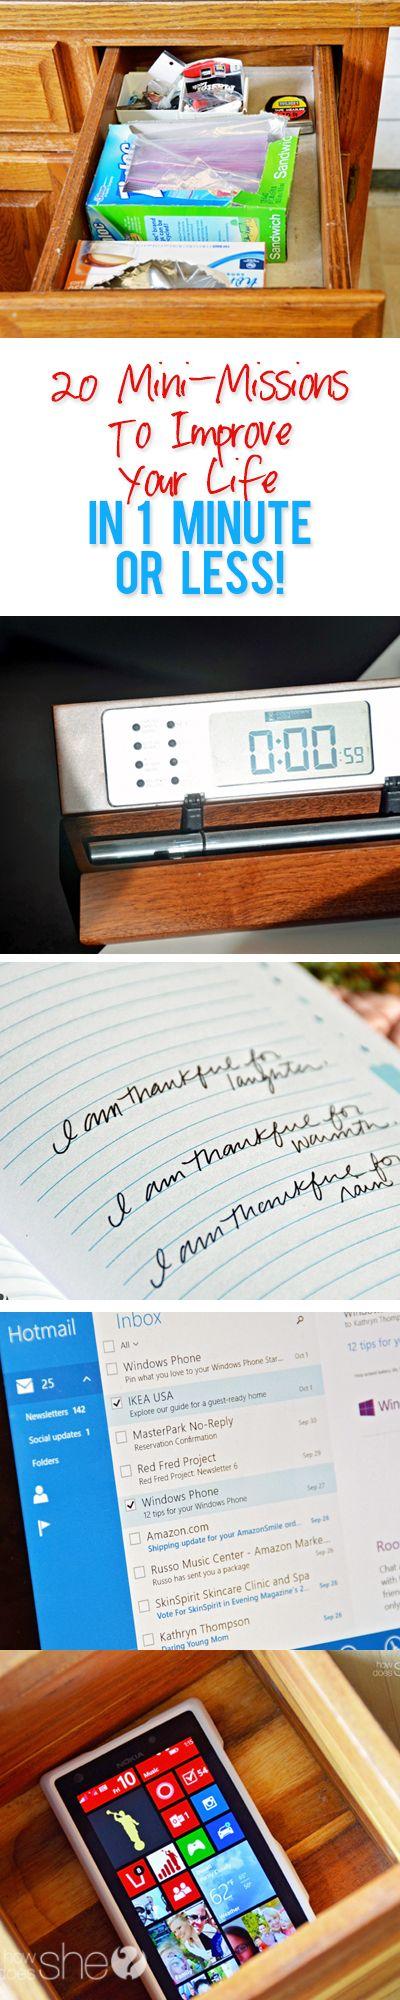 Sandwich
Sandwich
20 Mini-Missions
To Improve
Your Life
IN 1 MINUTE
OR LESS!
0:00 59
I am thankful for
laughter.
I am thankful for
warmth.
I am thankful for
rain
Hotmail
25
Newsletters 142
Social updates 1
Folders
Inbox
All
Windows Phone
Pin what you love to your Windows Phone Star... Oct 1
IKEA USA
Explore our guide for a guest-ready home Oct 1
MasterPark No-Reply
Reservation Confirmation Sep 30
Red Fred Project
Red Fred Project: Newsletter 6 Sep 29
Windows Phone
12 tips for your Windows Phone Sep 27
Amazon.com
Shipping update for your AmazonSmile ord... Sep 26
Russo Music Center - Amazon Marke...
Russo has sent you a package Sep 26
SkinSpirit Skincare Clinic and Spa
Vote For SkinSpirit in Evening Magazine's 2... Sep 26
Kathryn Thompson
Daring Young Mom Sep 26
to Kathryn Thomp
12 tips for your
Windo
Roo
Chat a
friend
only fo
how
does
NOKIA
1:15
Fri 10
Music
54
1
62°
Weather
how
does she?